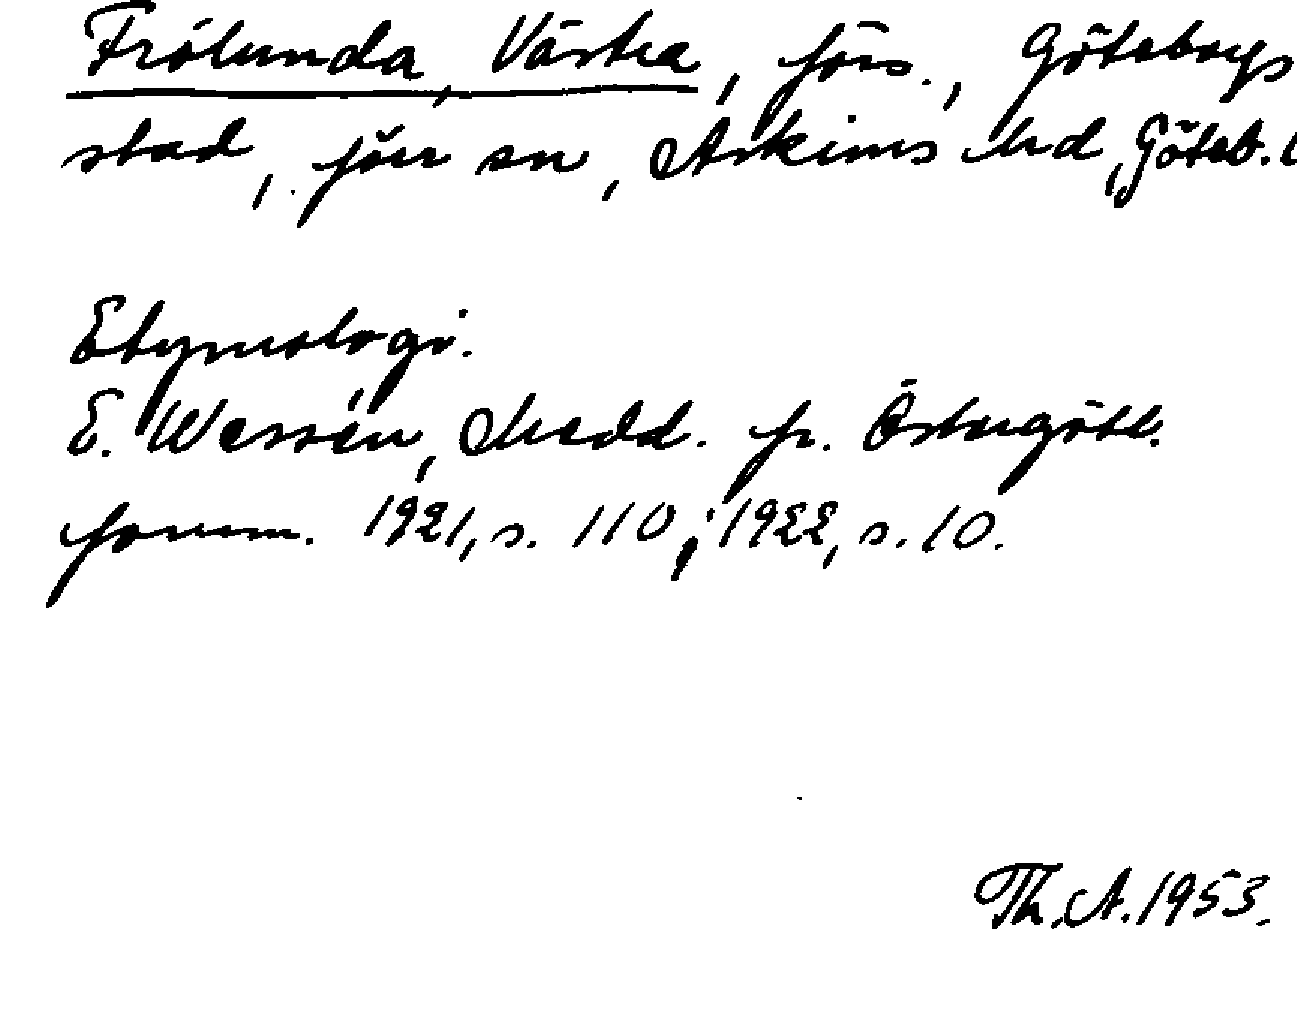 Frölunda, Västra, förs., Göteborgs
stad, förr sn, Askims hd, Göteb. l
Etymologi.
E. Wessén, Medd. fr. Östergötl.
fornm. 1921, s. 110; 1922, s. 10.
Th. A. 1953.